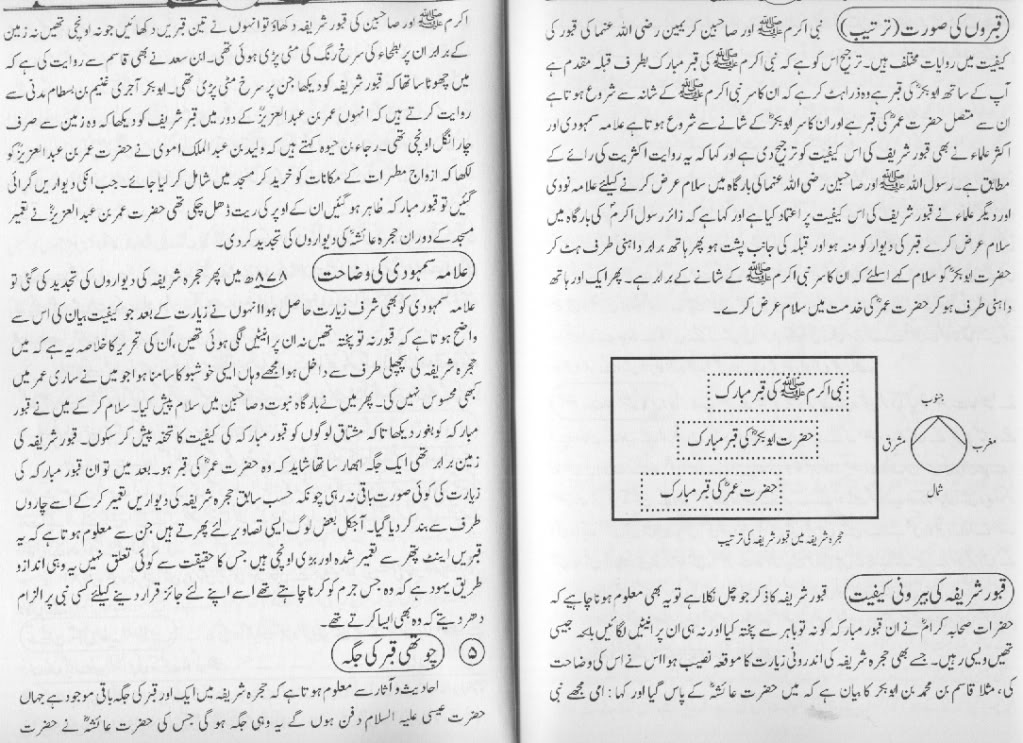 قبروں کی صورت (ترتیب) نبی اکرم ﷺ اور صاحبین کریمین رضی اللہ عنہما کی قبور کی
کیفیت میں روایات مختلف ہیں۔ ترجیح اس کو ہے کہ نبی اکرم ﷺ کی قبر مبارک بطرف قبلہ مقدم ہے
آپ کے ساتھ ابوبکرؓ کی قبر ہے وہ ذرا ہٹ کر ہے کہ ان کا سر نبی اکرم ﷺ کے شانہ سے شروع ہوتا ہے
ان سے متصل حضرت عمرؓ کی قبر ہے اور ان کا سر ابوبکرؓ کے شانے سے شروع ہوتا ہے علامہ سمہودی اور
اکثر علماء نے بھی قبور شریف کی اس کیفیت کو ترجیح دی ہے اور کہا کہ یہ روایت اکثریت کی رائے کے
مطابق ہے۔ رسول اللہ ﷺ اور صاحبین رضی اللہ عنہما کی بارگاہ میں سلام عرض کرنے کیلئے علامہ نووی
اور دیگر علماء نے قبور شریف کی اس کیفیت پر اعتماد کیا ہے اور کہا ہے کہ زائر رسول اکرمؐ کی بارگاہ میں
سلام عرض کرے قبر کی دیوار کو منہ ہو اور قبلہ کی جانب پشت ہو پھر ہاتھ برابر داہنی طرف ہٹ کر
حضرت ابوبکرؓ کو سلام کہے اسلئے کہ ان کا سر نبی اکرم ﷺ کے شانے کے برابر ہے۔ پھر ایک اور ہاتھ
داہنی طرف ہو کر حضرت عمرؓ کی خدمت میں سلام عرض کرے۔
نبی اکرم ﷺ کی قبر مبارک
حضرت ابوبکرؓ کی قبر مبارک
حضرت عمرؓ کی قبر مبارک
جنوب
مغرب
مشرق
شمال
حجرہ شریفہ میں قبور شریفہ کی ترتیب
قبور شریفہ کی بیرونی کیفیت قبور شریفہ کا ذکر جو چل نکلا ہے تو یہ بھی معلوم ہونا چاہیے کہ
حضرات صحابہ کرامؓ نے ان قبور مبارکہ کو نہ تو باہر سے پختہ کیا اور نہ ہی ان پر اینٹیں لگائیں بلکہ جیسی
تھیں ویسی رہیں۔ جسے بھی حجرہ شریفہ کی اندرونی زیارت کا موقعہ نصیب ہوا اس نے اس کی وضاحت
کی، مثلا قاسم بن محمد بن ابوبکر کا بیان ہے کہ میں حضرت عائشہؓ کے پاس گیا اور کہا : امی مجھے نبی
اکرم ﷺ اور صاحبین کی قبور شریفہ دکھاؤ تو انہوں نے تین قبریں دکھائیں جو نہ اونچی تھیں نہ زمین
کے برابر ان پر بطحاء کی سرخ رنگ کی مٹی پڑی ہوئی تھی۔ ابن سعد نے بھی قاسم سے روایت کی ہے کہ
میں چھوٹا سا تھا کہ قبور شریفہ کو دیکھا جن پر سرخ مٹی پڑی تھی۔ ابوبکر آجری غنیم بن بسطام مدنی سے
روایت کرتے ہیں کہ انہوں عمر بن عبد العزیزؒ کے دور میں قبر شریف کو دیکھا کہ وہ زمین سے صرف
چار انگل اونچی تھی۔ رجاء بن حیوہ کہتے ہیں کہ ولید بن عبد الملک اموی نے حضرت عمر بن عبد العزیزؒ کو
لکھا کہ ازواج مطہرات کے مکانات کو خرید کر مسجد میں شامل کر لیا جائے۔ جب انکی دیواریں گرائی
گئیں تو قبور مبارکہ ظاہر ہو گئیں ان کے اوپر کی ریت ڈھل چکی تھی حضرت عمر بن عبد العزیزؒ نے تعمیر
مسجد کے دوران حجرہ عائشہؓ کی دیواروں کی تجدید کر دی۔
علامہ سمہودی کی وضاحت ۸۷۸ھ میں پھر حجرہ شریفہ کی دیواروں کی تجدید کی گئی تو
علامہ سمہودی کو بھی شرف زیارت حاصل ہوا انہوں نے زیارت کے بعد جو کیفیت بیان کی اس سے
واضح ہوتا ہے کہ قبور نہ تو پختہ تھیں نہ ان پر اینٹیں لگی ہوئی تھیں، اُن کی تحریر کا خلاصہ یہ ہے کہ میں
حجرہ شریفہ کی پچھلی طرف سے داخل ہوا مجھے وہاں ایسی خوشبو کا سامنا ہوا جو میں نے ساری عمر میں
کبھی محسوس نہیں کی۔ پھر میں نے بارگاہ نبوت و صاحبین میں سلام پیش کیا۔ سلام کر کے میں نے قبور
مبارکہ کو بغور دیکھا تاکہ مشتاق لوگوں کو قبور مبارکہ کی کیفیت کا تحفہ پیش کر سکوں۔ قبور شریفہ کی
زمین برابر تھی ایک جگہ ابھار سا تھا شاید کہ وہ حضرت عمرؓ کی قبر ہو۔ بعد میں تو ان قبور مبارکہ کی
زیارت کی کوئی صورت باقی نہ رہی چونکہ حسب سابق حجرہ شریفہ کی دیواریں تعمیر کر کے اسے چاروں
طرف سے بند کر دیا گیا۔ آجکل بعض لوگ ایسی تصاویر لئے پھرتے ہیں جن سے معلوم ہوتا ہے کہ یہ
قبریں اینٹ پتھر سے تعمیر شدہ اور بڑی اونچی ہیں جس کا حقیقت سے کوئی تعلق نہیں یہ وہی انداز و
طریق یہود ہے کہ وہ جس جرم کو کرنا چاہتے تھے اسے اپنے لئے جائز قرار دینے کیلئے کسی نبی پر الزام
دھر دیتے کہ وہ بھی ایسا کرتے تھے۔
۵ چوتھی قبر کی جگہ
احادیث و آثار سے معلوم ہوتا ہے کہ حجرہ شریفہ میں ایک اور قبر کی جگہ باقی موجود ہے جہاں
حضرت عیسی علیہ السلام دفن ہوں گے یہ وہی جگہ ہو گی جس کی حضرت عائشہؓ نے حضرت